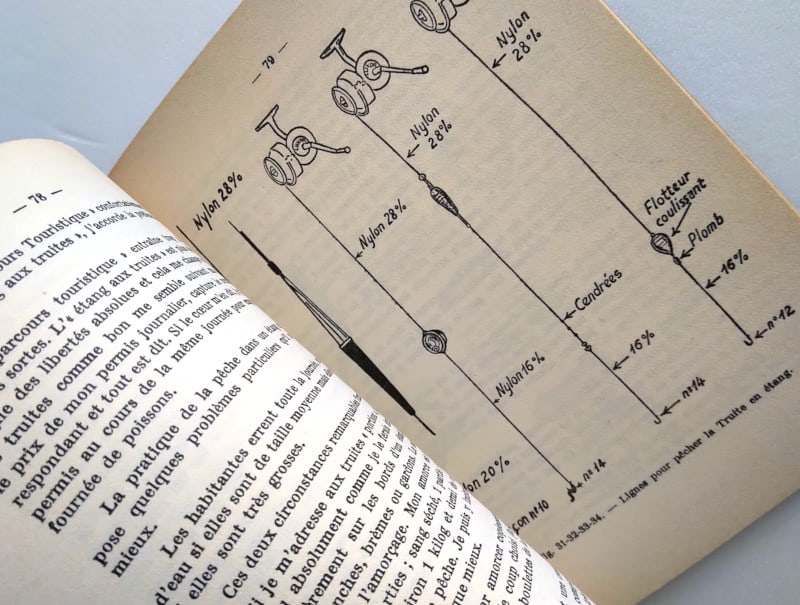 — 78 —
ours Touristique » conforme
aux truites », l'accorde la
parcours touristique » entraîne,
sortes. L'« étang aux truites » est
des libertés absolues et cela me
truites comme bon me semble suivant
prix de mon permis journalier, capture
respondant et tout est dit. Si le cœur m'en
permis au cours de la même journée
fournée de poissons.
La pratique de la pêche dans un
pose quelques problèmes particuliers
mieux.
Les habitantes errent toute la journée
d'eau si elles sont de taille moyenne mais
elles sont très grosses.
Ces deux circonstances remarquables
si je m'adresse aux truites
absolument comme je le ferai
sur les bords d'un
brèmes ou gardons.
l'amorçage. Mon amorce
; sang séché, 1
1 kilog et demi
pêche. Je puis y
que mieux
amorcer
coup choisi
boulette
— 79 —
Nylon 28%
Nylon 28%
Nylon 28%
Nylon 28%
Flotteur
coulissant
Plomb
16%
n°12
Cendrées
16%
n°14
Nylon 16%
n°14
20%
n°10
31-32-33-34. — Lignes pour pêcher la Truite en étang.